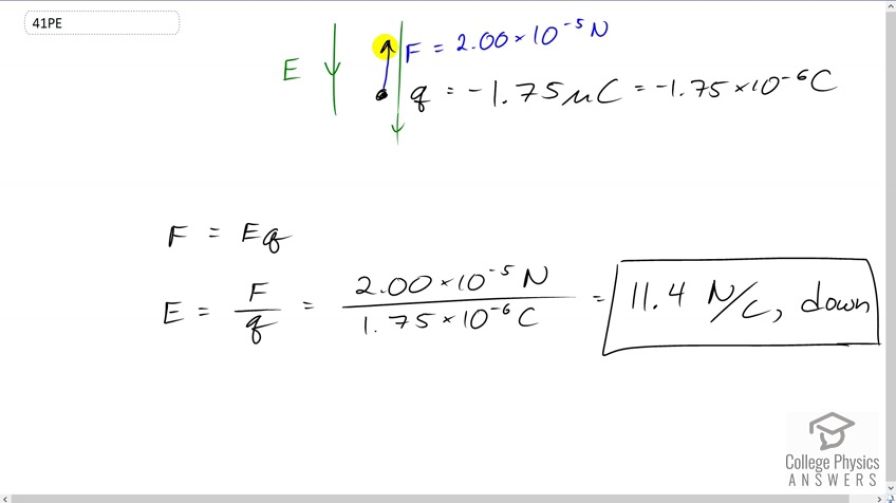 41PE
E F = 2.00 × 10⁻⁵ N
q = -1.75 μC = -1.75 × 10⁻⁶ C
F = Eq
E = F/q = 2.00 × 10⁻⁵ N / 1.75 × 10⁻⁶ C = 11.4 N/C, down
College Physics
ANSWERS